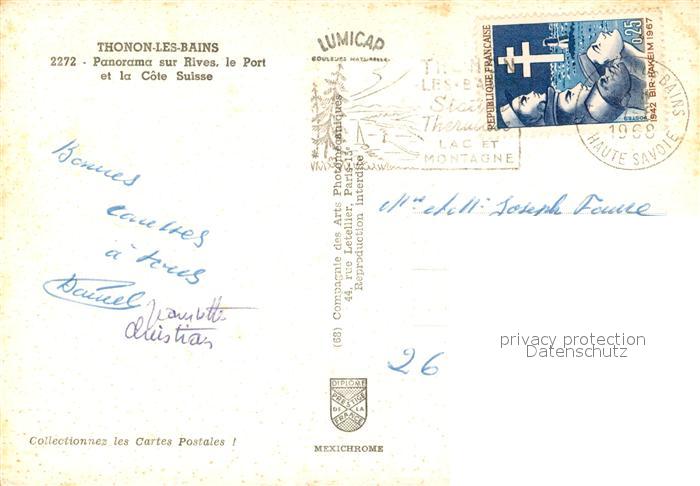 THONON-LES-BAINS
2272 - Panorama sur Rives, le Port
et la Côte Suisse
LUMICAP
COULEURS NATURELLES
LES-B
Stat
Therm
LAC ET
MONTAGNE
REPUBLIQUE FRANÇAISE
0,25
1942 BIR-HAKEIM 1967
BAINS
1968
HAUTE SAVOIE
(68) Compagnie des Arts Photomécaniques
44, rue Letellier, Paris-15e
Reproduction Interdite
Bonnes
à tous
Daniel
Christian
Joseph Faure
26
privacy protection
Datenschutz
DIPLOME
PRESTIGE
DE LA
FRANCE
MEXICHROME
Collectionnez les Cartes Postales !